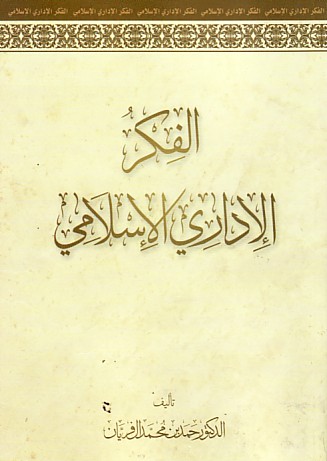 الفكر الإداري الإسلامي الفكر الإداري الإسلامي الفكر الإداري الإسلامي الفكر الإداري الإسلامي الفكر الإداري الإسلامي
الفِكرُ
الإِدَارِي الإِسْلَامِي
تأليف
الدكتور حمد بن محمد